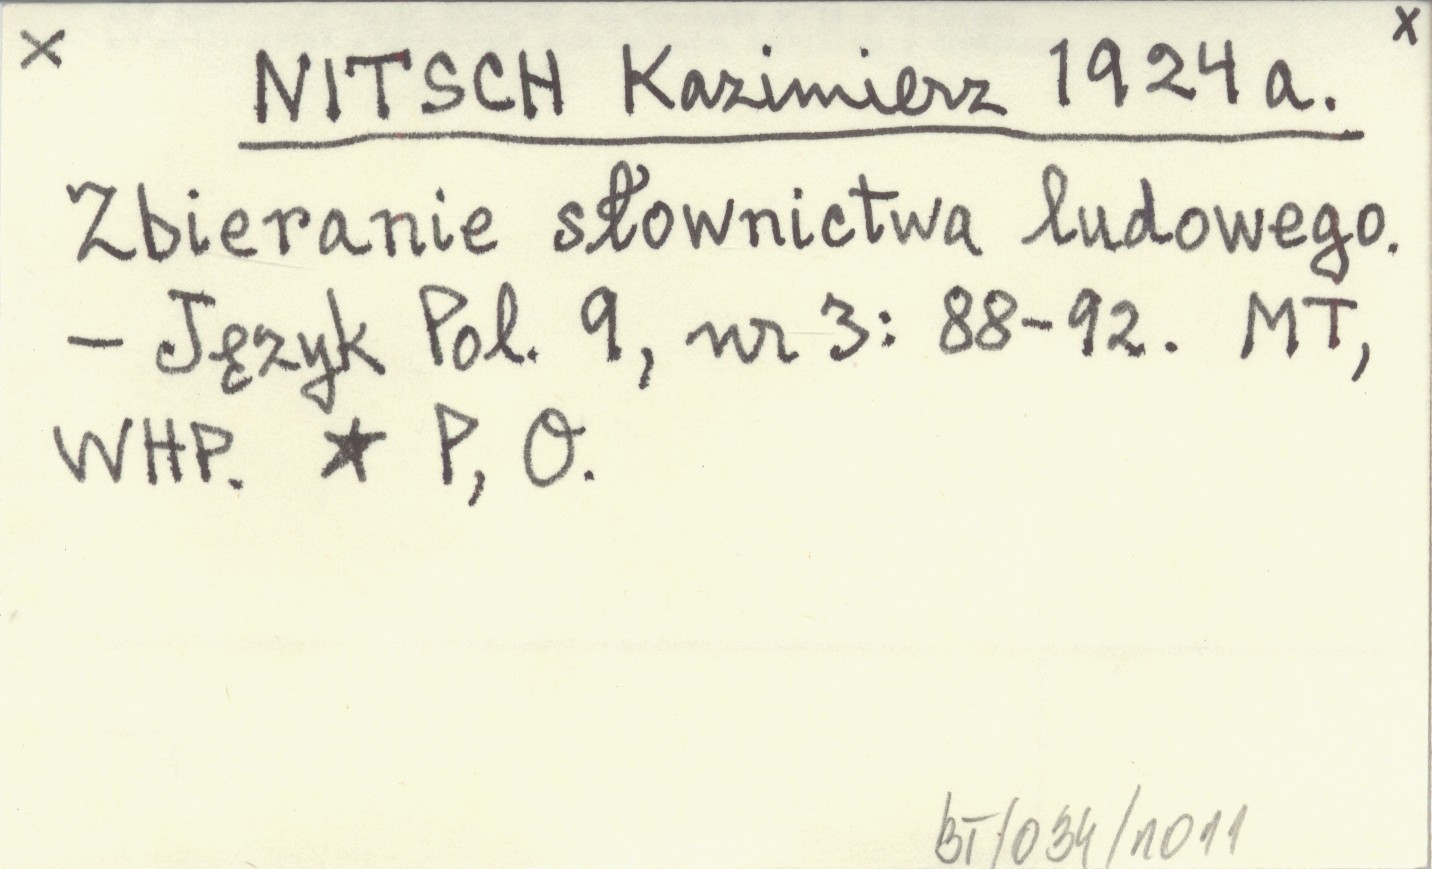 x x
NITSCH Kazimierz 1924a.
Zbieranie słownictwa ludowego.
– Język Pol. 9, nr 3: 88-92. MT,
WHP. ★ P, O.
BT/034/1011